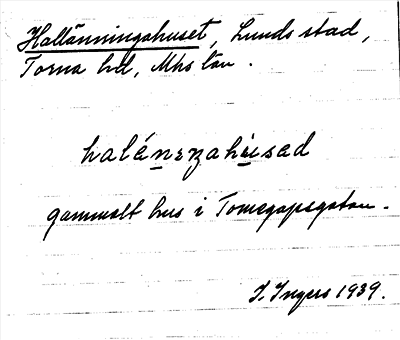 Hallänningahuset, Lunds stad,
Torna hd, Mhs län.
gammalt hus i Tomegapsgatan.
I. Ingers 1939.